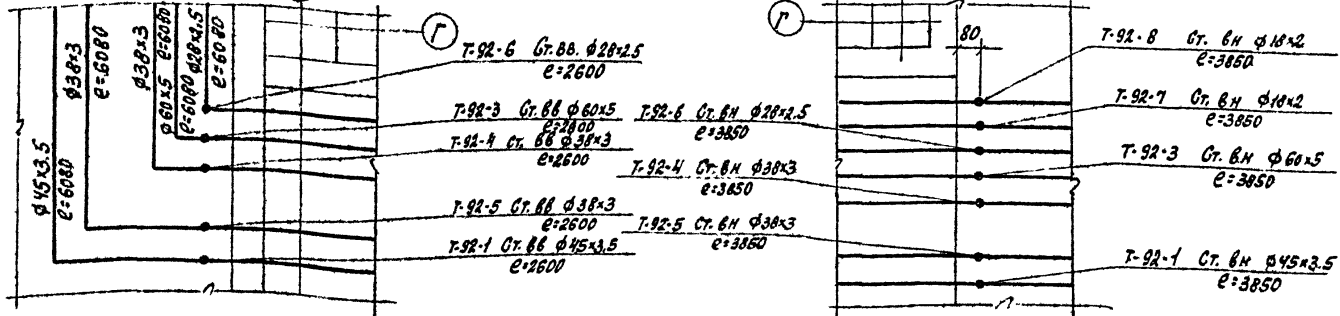 ф45х3.5
е=6080
ф38х3
е=6080
ф38х3
ф60х5
е=6080
е=6080
ф28х2.5
е=6080
Г
Т-92-6 Ст. вв. ф28х2.5
е=2600
Т-92-3 Ст. вв ф60х5
е=2600
Т-92-4 Ст. вв ф38х3
е=2600
Т-92-5 Ст. вв ф38х3
е=2600
Т-92-1 Ст. вв ф45х3,5
е=2600
Г
80
Т-92-6 Ст. вн ф28х2,5
е=3850
Т-92-4 Ст. вн ф38х3
е=3850
Т-92-5 Ст. вн ф38х3
е=3850
Т-92-8 Ст. вн ф18х2
е=3850
Т-92-7 Ст. вн ф18х2
е=3850
Т-92-3 Ст. вн ф60х5
е=3850
Т-92-1 Ст. вн ф45х3.5
е=3850